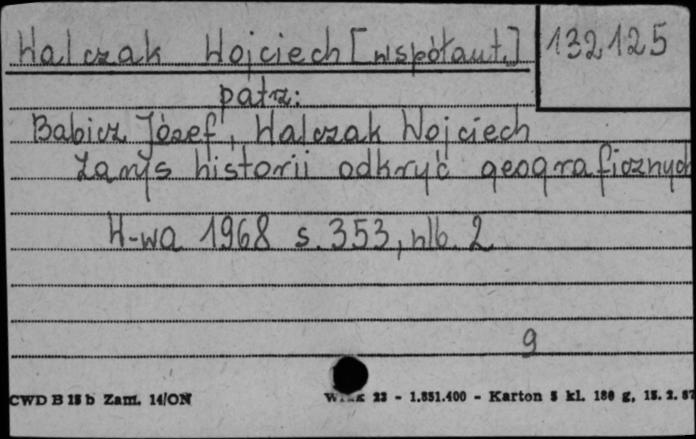 Walczak Wojciech [współaut.] 132125
patrz:
Babicz Józef, Walczak Wojciech
Zarys historii odkryć geograficznych
W-wa 1968 s. 353, nlb. 2
9
CWD B 15 b Zam. 14/ON 23 - 1.851.400 - Karton 5 kl. 180 g, 15. 2. 67